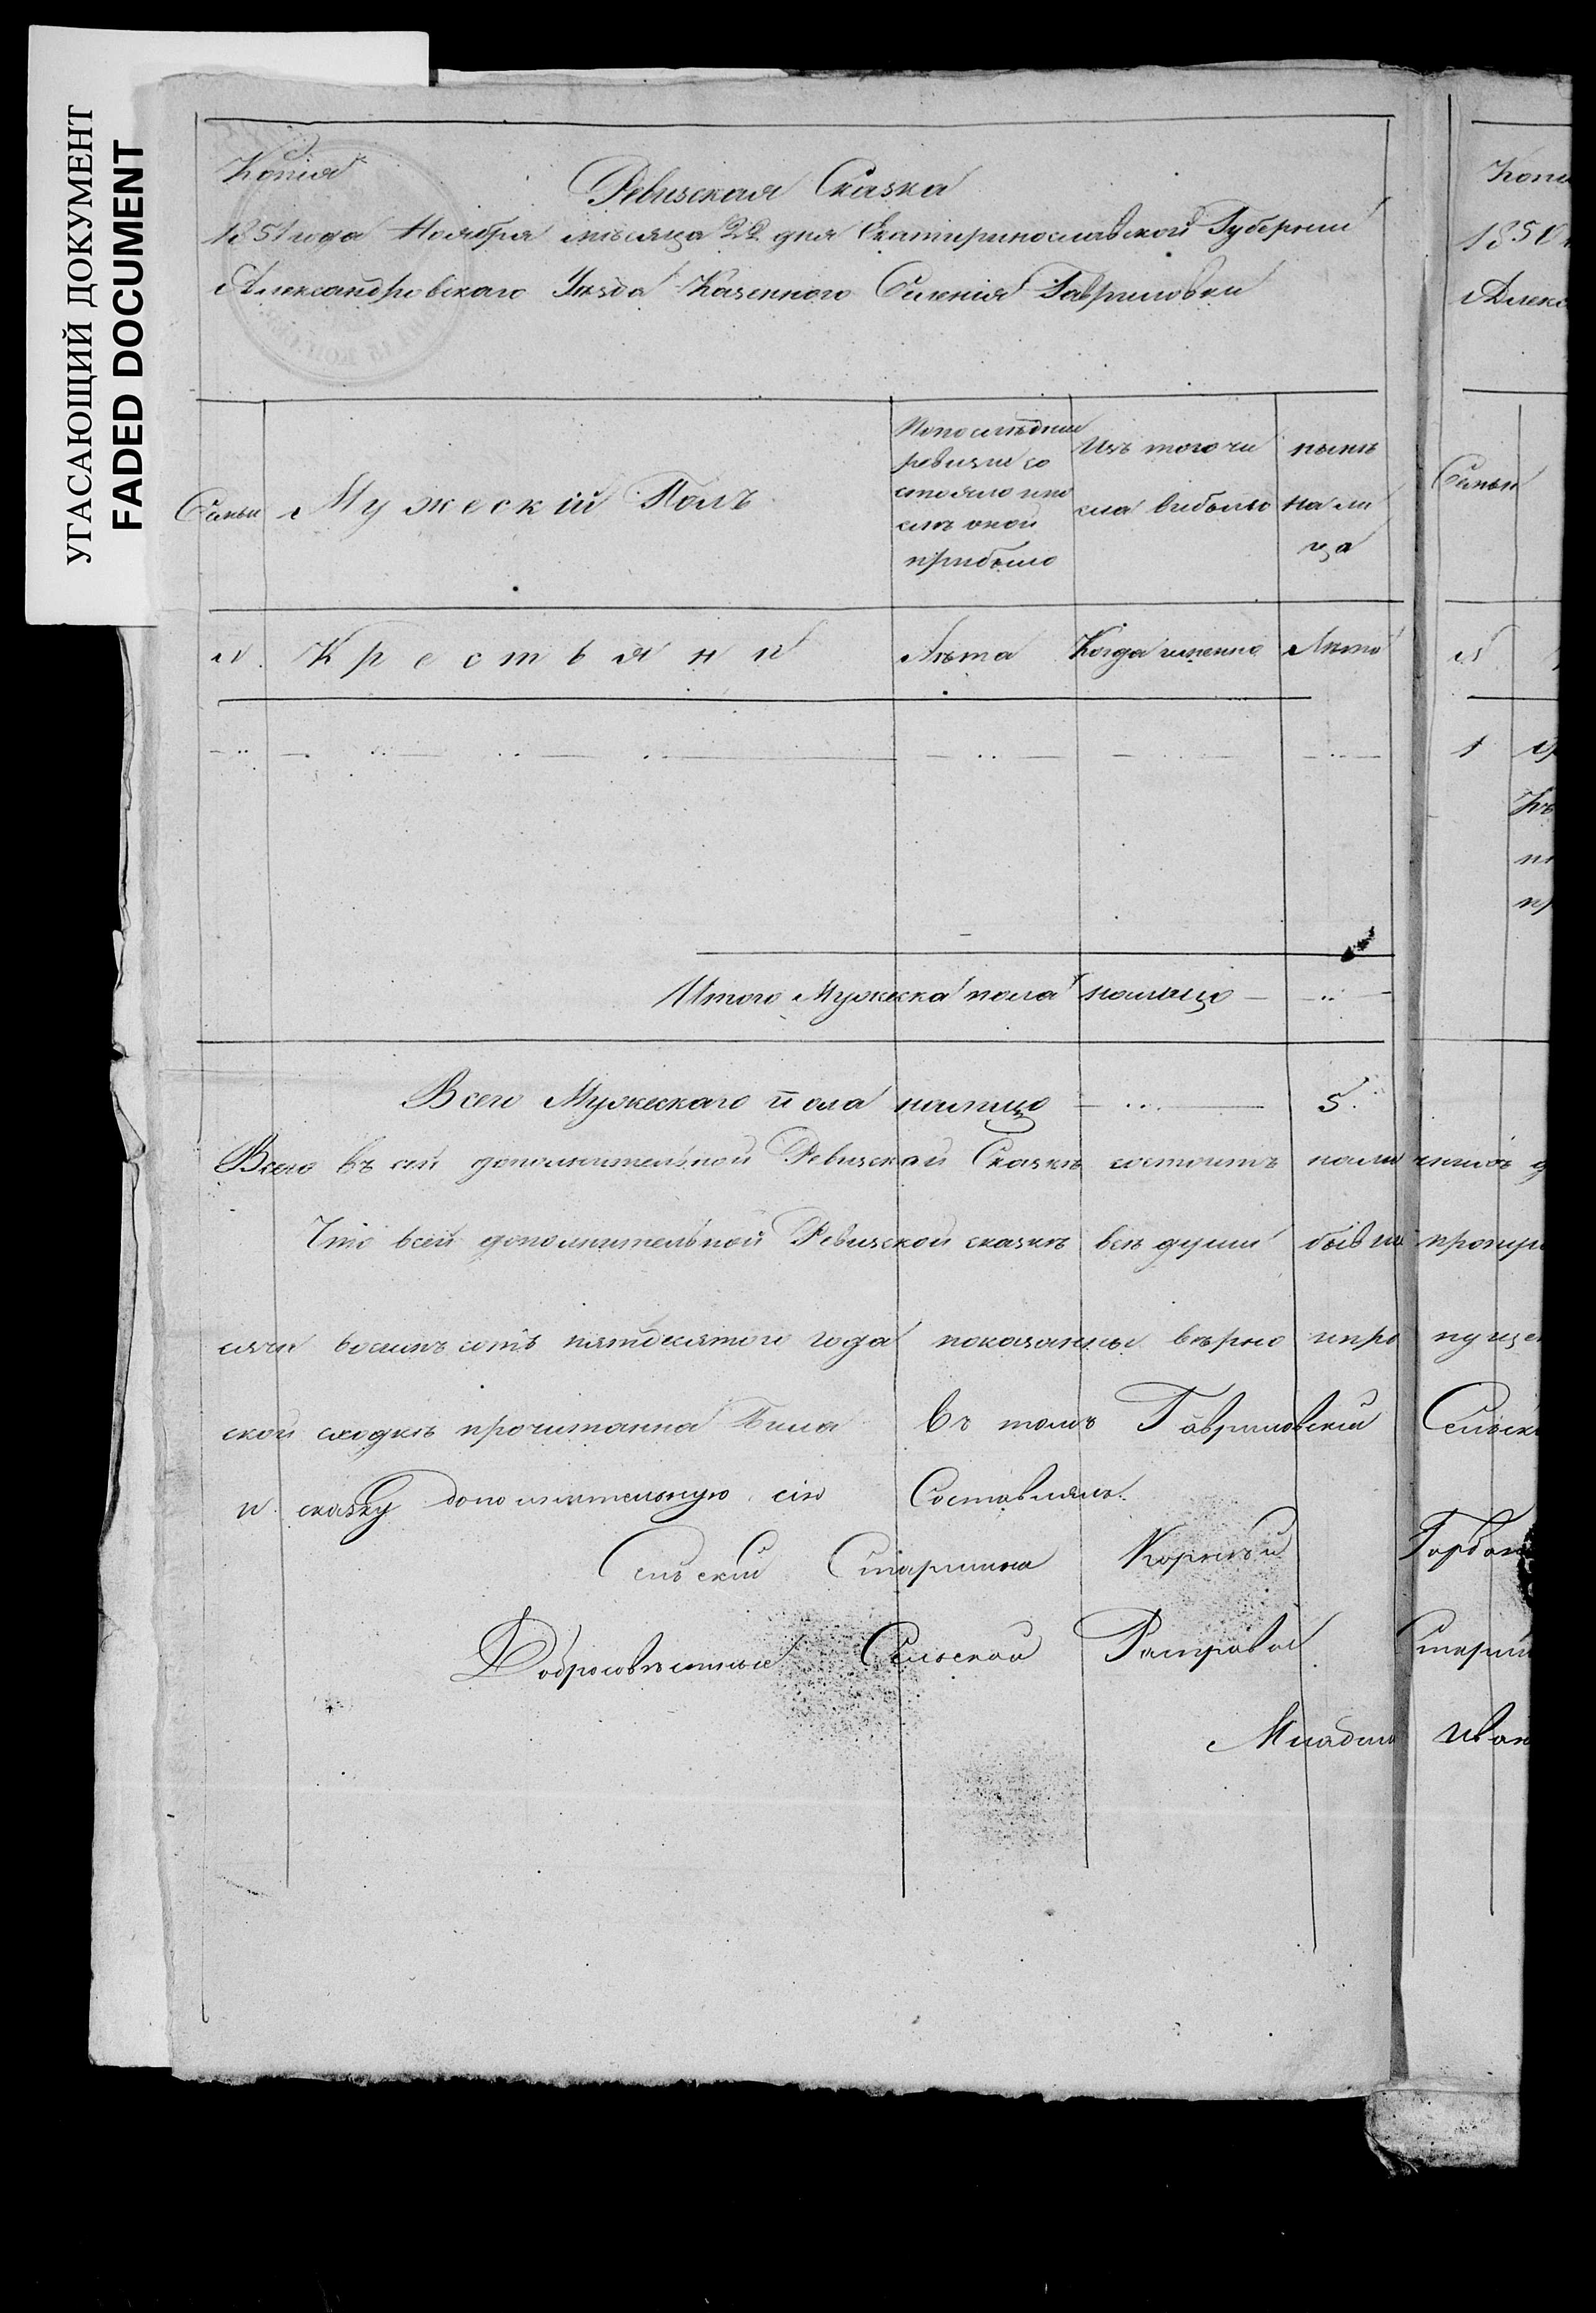 УГАСАЮЩИЙ ДОКУМЕНТ
FADED DOCUMENT
Копія
Ревизская Сказка
1851 года Ноября месяца 22 дня Екатеринославской Губерніи
Александровскаго Уезда Казенного Селенія Гавриловки
Семьи
Мужескій Полъ
Попоследней
ревизіи со
стояло ипо
слъ оной
прибыло
Изъ того чи
сла выбыло
нынъ
на ли
цо
N.
Крестьяни
Лъта
Когда именно
Лето
Итого Мужеска пола налицо — —
Всего Мужескаго пола налицо — 5.
Всего въ сей дополнительной Ревизской Сказкъ состоитъ нали
Что всей дополнительной Ревизской сказкъ всъ души бывши
сячи восимъ сотъ пятдесятого года показанны върно ипро
ской сходкъ прочитанна Била въ томъ Гавриловскій
и сказку дополнительную сію Составлялъ.
Сельский Старшина Корний
Добросовъстные Сельской Росправы
Копі
1850
Алекс
Семьи
N
1
пуще
Сельск
Горбан
Старши
Иван